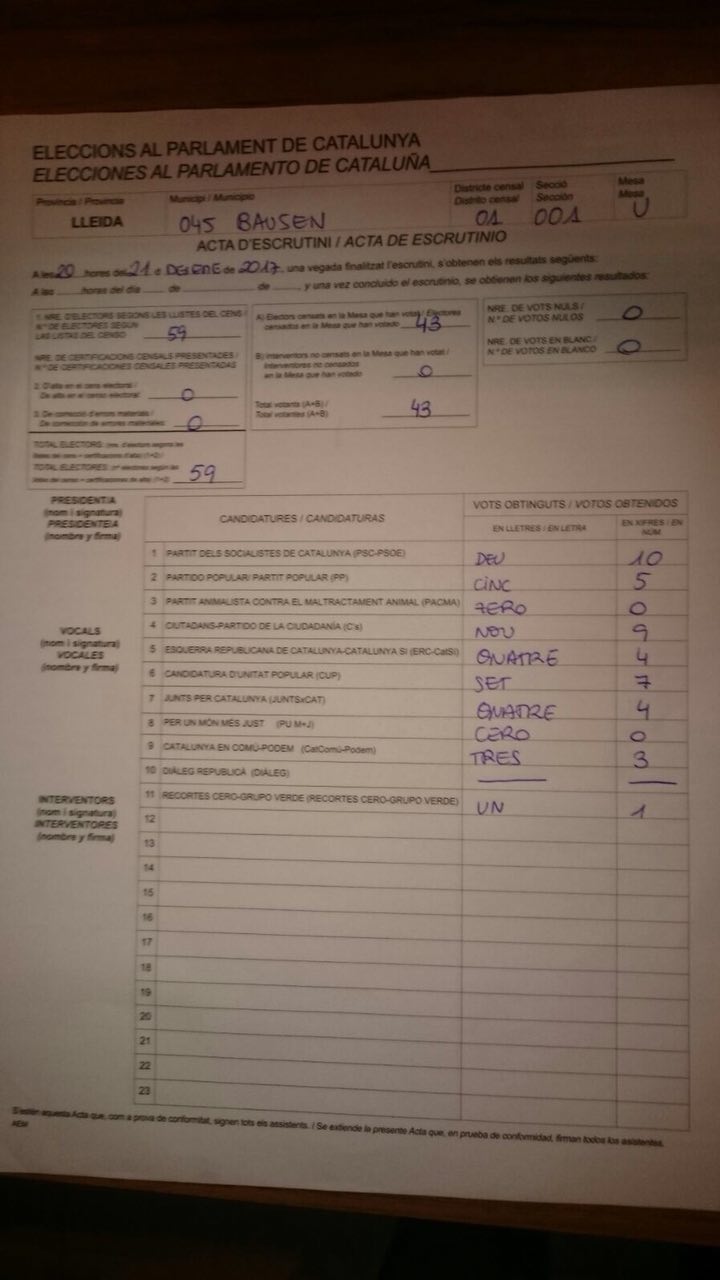 ELECCIONS AL PARLAMENT DE CATALUNYA
ELECCIONES AL PARLAMENTO DE CATALUÑA
Província / Provincia
LLEIDA
Municipi / Municipio
045 BAUSEN
Districte censal
Distrito censal
01
Secció
Sección
001
Mesa
Mesa
U
ACTA D'ESCRUTINI / ACTA DE ESCRUTINIO
A les 20 hores del 21 d de 2017, una vegada finalitzat l'escrutini, s'obtenen els resultats següents:
A las ____ horas del día ____ de ____ de ____, y una vez concluido el escrutinio, se obtienen los siguientes resultados:
1. NRE. D'ELECTORS SEGONS LES LLISTES DEL CENS /
N.º DE ELECTORES SEGÚN
LAS LISTAS DEL CENSO 59
NRE. DE CERTIFICACIONS CENSALS PRESENTADES /
N.º DE CERTIFICACIONES CENSALES PRESENTADAS
2. D'alta en el cens electoral /
De alta en el censo electoral: 0
3. De correcció d'errors materials /
De corrección de errores materiales: 0
TOTAL ELECTORS:
TOTAL ELECTORES: 59
A) Electors censats en la Mesa que han votat / Electores
censados en la Mesa que han votado 43
B) Interventors no censats en la Mesa que han votat /
Interventores no censados
en la Mesa que han votado 0
Total votants (A+B) /
Total votantes (A+B) 43
NRE. DE VOTS NULS /
N.º DE VOTOS NULOS 0
NRE. DE VOTS EN BLANC /
N.º DE VOTOS EN BLANCO 0
PRESIDENT/A
(nom i signatura)
PRESIDENTE/A
(nombre y firma)
VOCALS
(nom i signatura)
VOCALES
(nombre y firma)
INTERVENTORS
(nom i signatura)
INTERVENTORES
(nombre y firma)
CANDIDATURES / CANDIDATURAS
VOTS OBTINGUTS / VOTOS OBTENIDOS
EN LLETRES / EN LETRA
EN XIFRES / EN NÚM
1 PARTIT DELS SOCIALISTES DE CATALUNYA (PSC-PSOE) DEU 10
2 PARTIDO POPULAR/ PARTIT POPULAR (PP) CINC 5
3 PARTIT ANIMALISTA CONTRA EL MALTRACTAMENT ANIMAL (PACMA) ZERO 0
4 CIUTADANS-PARTIDO DE LA CIUDADANÍA (C's) NOU 9
5 ESQUERRA REPUBLICANA DE CATALUNYA-CATALUNYA SÍ (ERC-CatSí) QUATRE 4
6 CANDIDATURA D'UNITAT POPULAR (CUP) SET 7
7 JUNTS PER CATALUNYA (JUNTSxCAT) QUATRE 4
8 PER UN MÓN MÉS JUST (PU M+J) CERO 0
9 CATALUNYA EN COMÚ-PODEM (CatComú-Podem) TRES 3
10 DIÀLEG REPUBLICÀ (DIÀLEG)
11 RECORTES CERO-GRUPO VERDE (RECORTES CERO-GRUPO VERDE) UN 1
12
13
14
15
16
17
18
19
20
21
22
23
S'estén aquesta Acta que, com a prova de conformitat, signen tots els assistents. / Se extiende la presente Acta que, en prueba de conformidad, firman todos los asistentes.